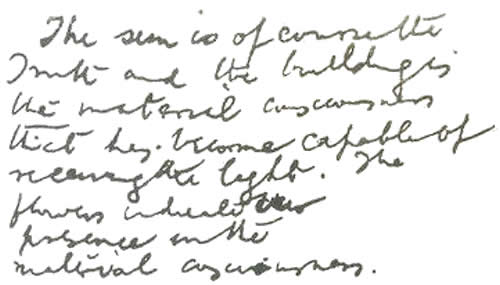 The sun is of course the
Truth and the building is
the material consciousness
that has become capable of
receiving the light. The
flowers indicate
presence in the
material consciousness.